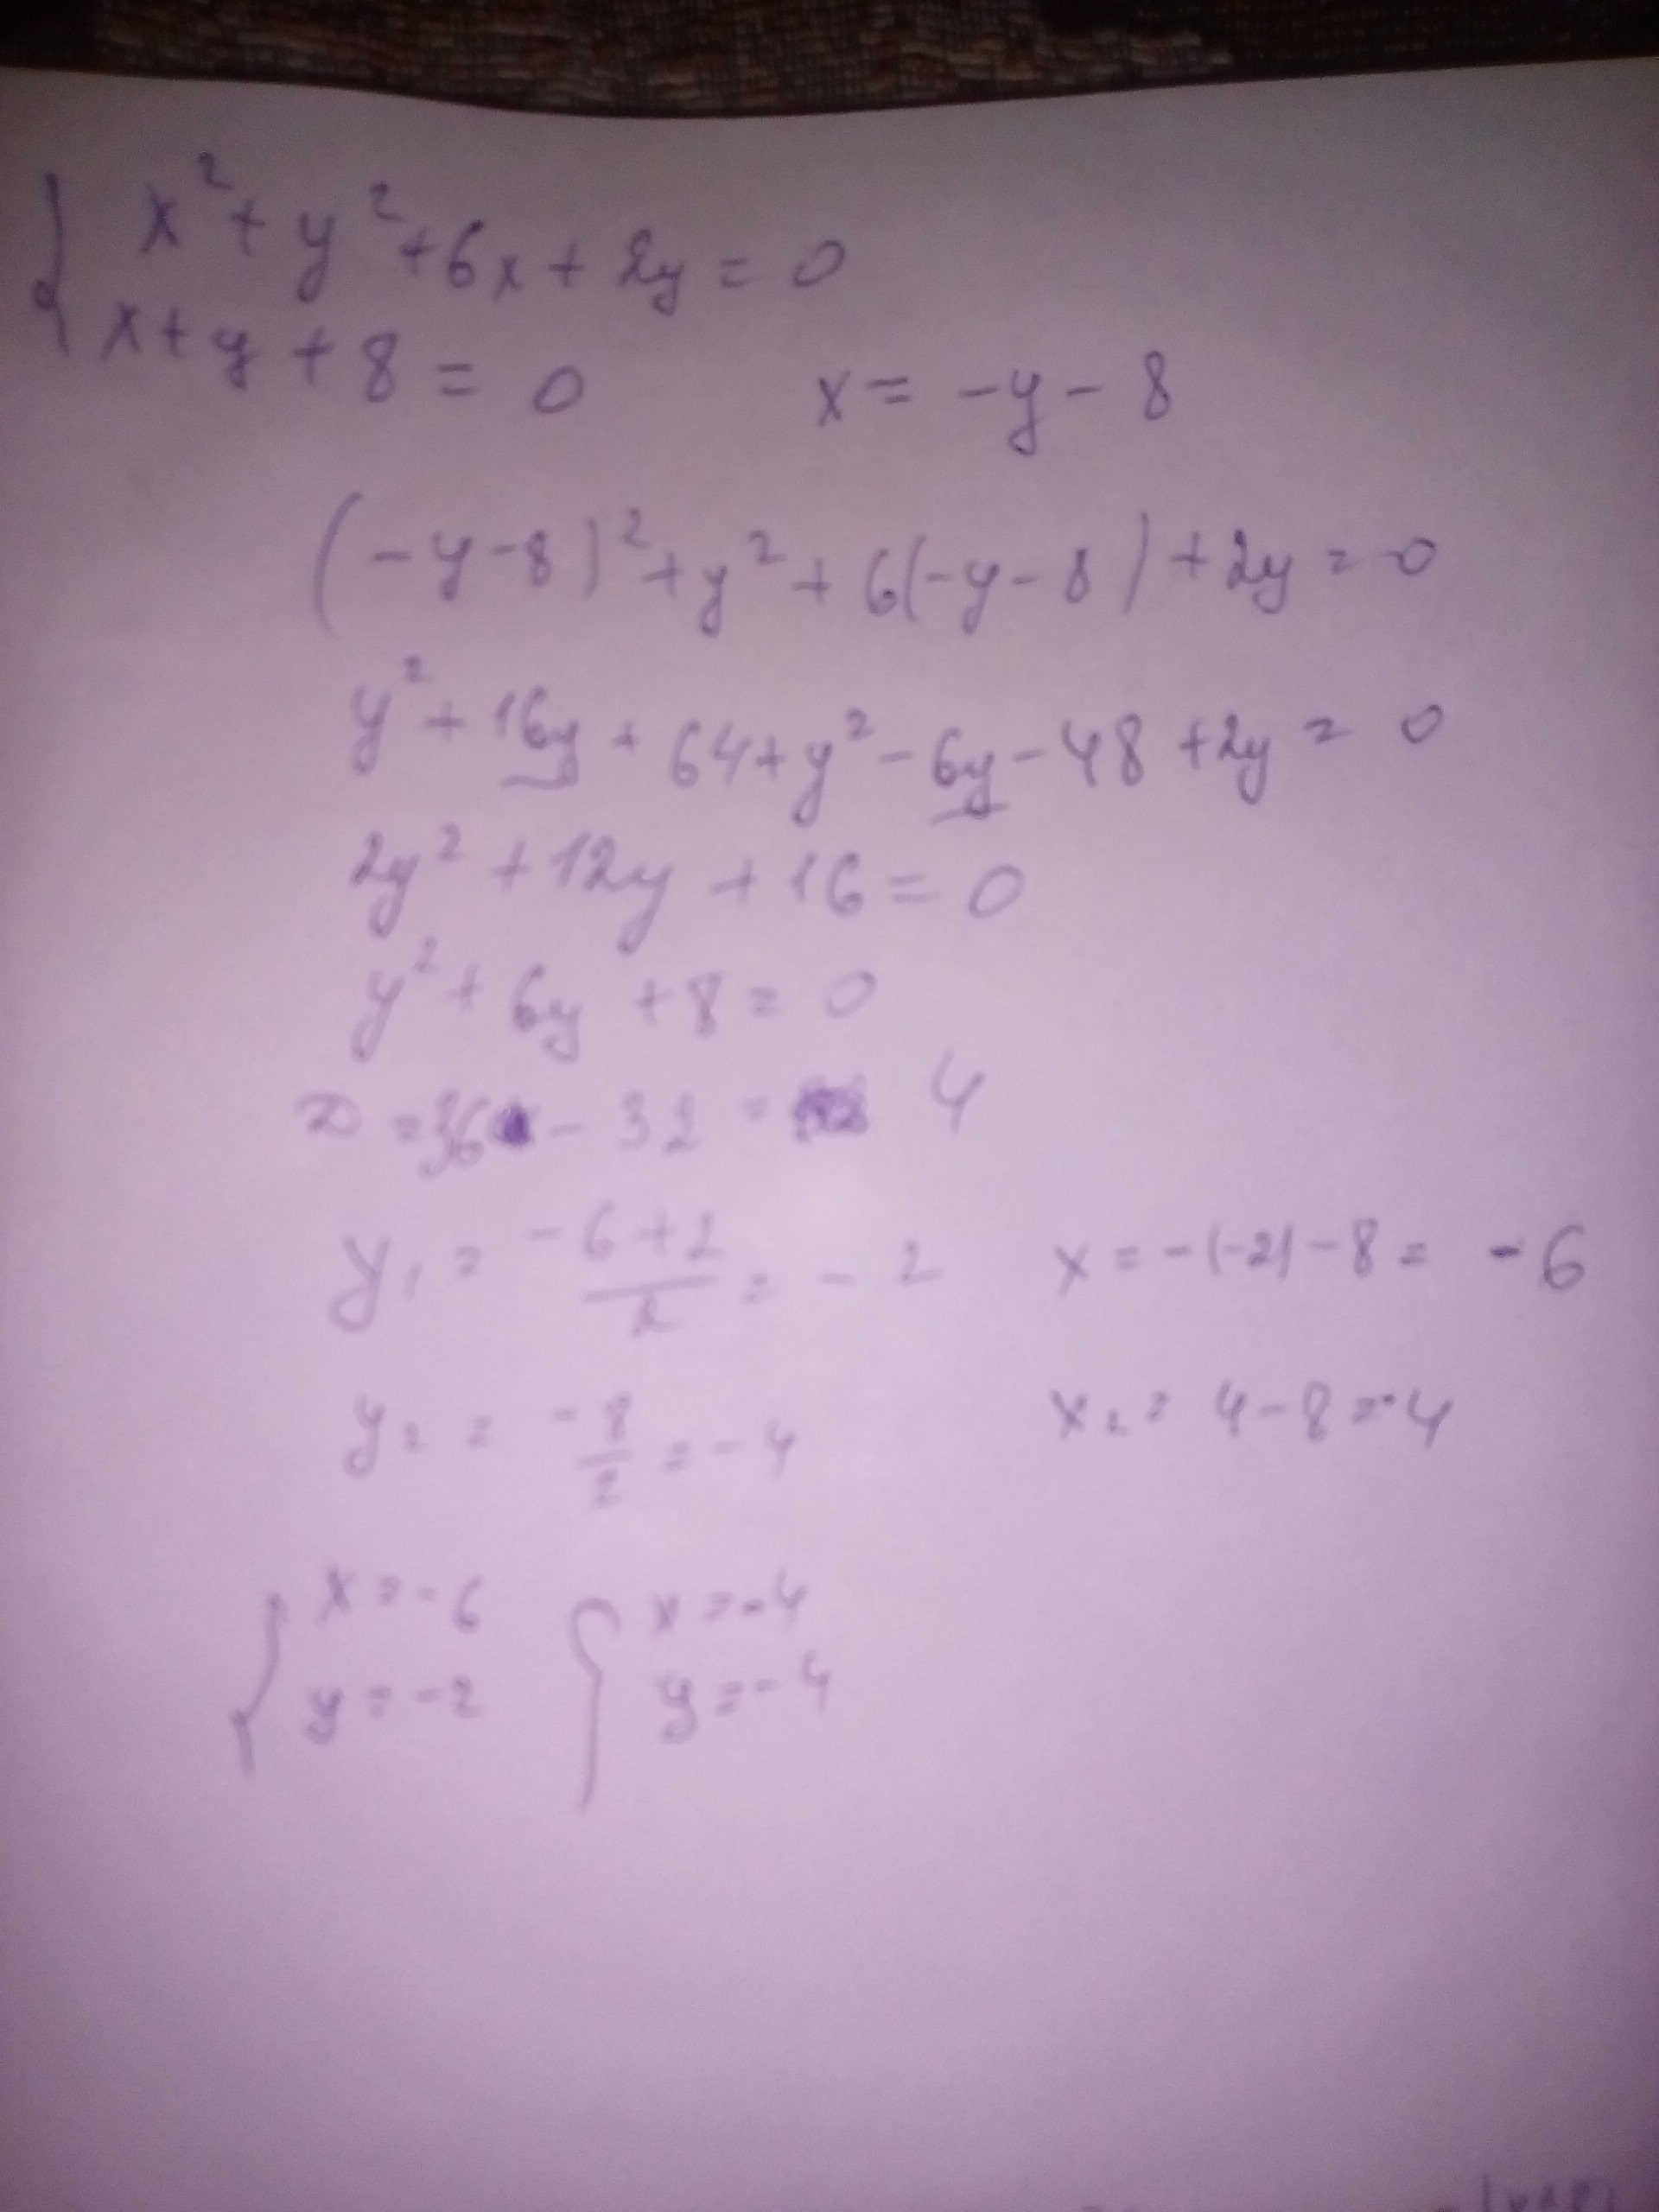 x² + y² + 6x + 2y = 0
x + y + 8 = 0 x = -y - 8
(-y-8)² + y² + 6(-y-8) + 2y = 0
y² + 16y + 64 + y² - 6y - 48 + 2y = 0
2y² + 12y + 16 = 0
y² + 6y + 8 = 0
D = 36 - 32 = 4
y₁ = (-6+2)/2 = -2 x = -(-2) - 8 = -6
y₂ = -8/2 = -4 x₂ = 4 - 8 = -4
{ x = -6 { x = -4
y = -2 y = -4